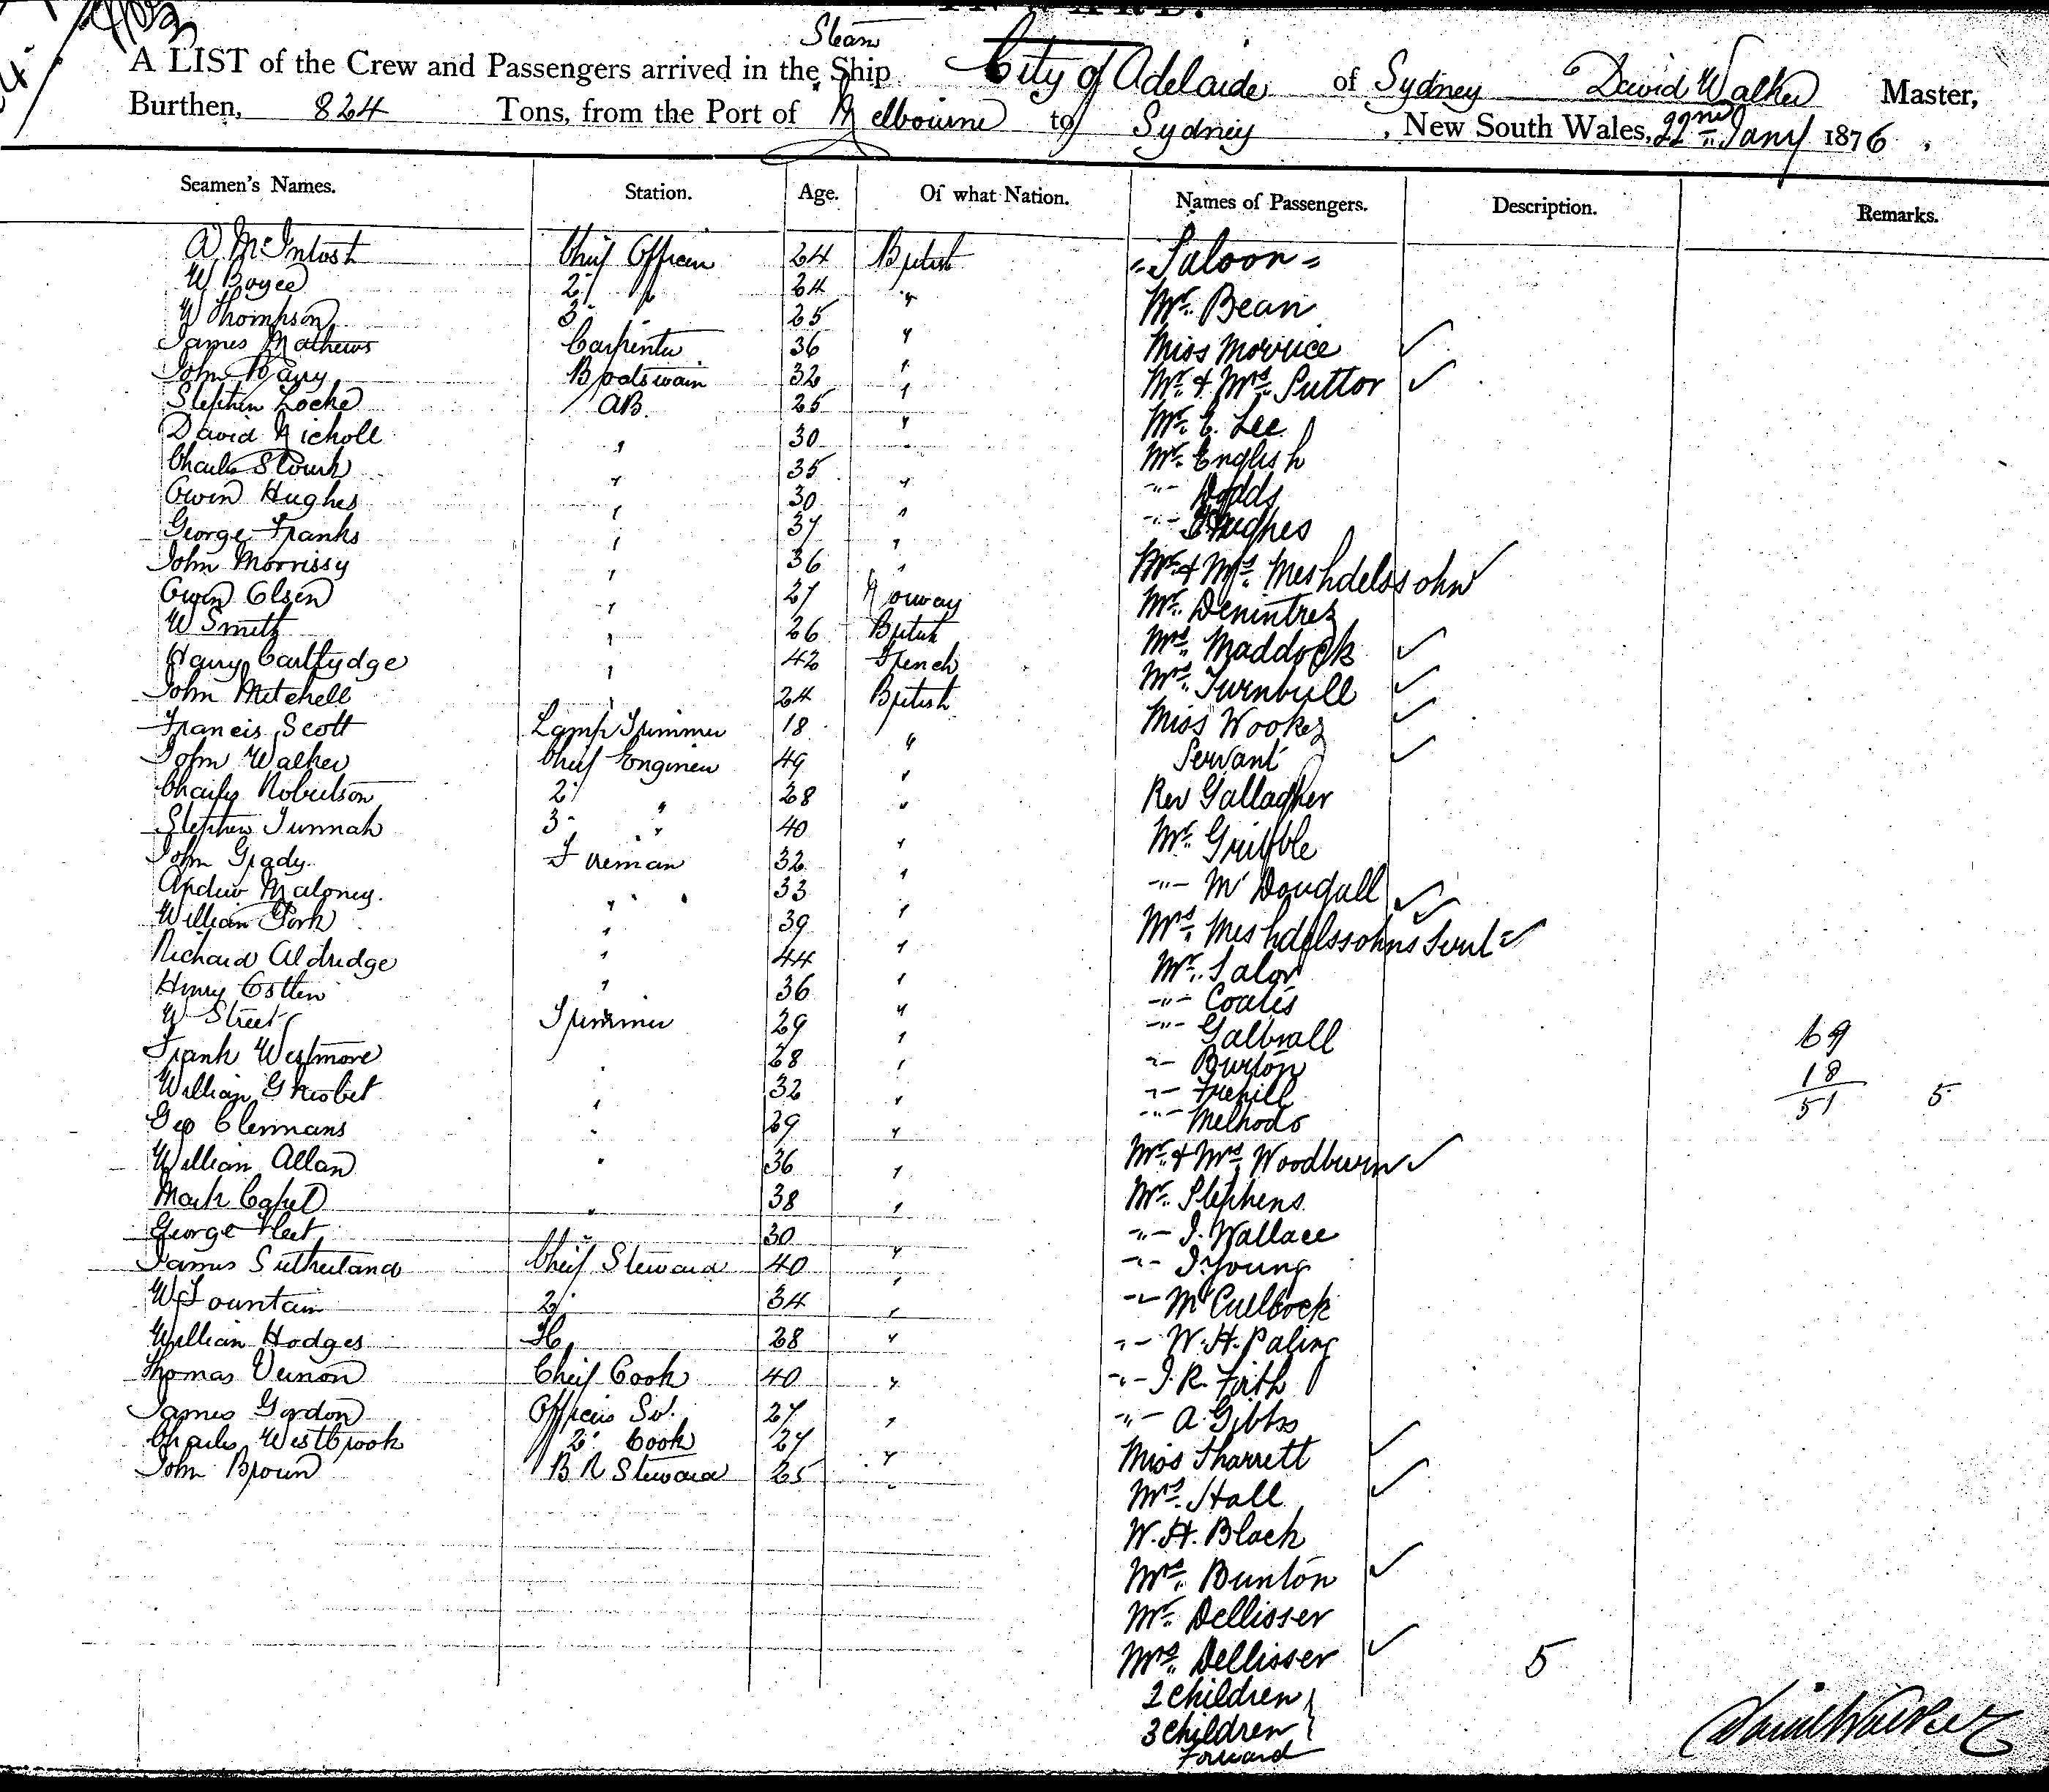 INWARD.
Steam
A LIST of the Crew and Passengers arrived in the Ship City of Adelaide of Sydney David Walker Master,
Burthen, 824 Tons, from the Port of Melbourne to Sydney, New South Wales, 22nd Jany 1876.
Seamen's Names. Station. Age. Of what Nation. Names of Passengers. Description. Remarks.
A McIntosh Chief Officer 24 British "Saloon"
W Boyce 2 " 24 " Mr. Bean
W Thompson 3 " 25
James Mathews Carpenter 36 " Miss Morrice ✓
John Barry Boatswain 32 " Mr. & Mrs. Suttor ✓
Stephen Locke AB. 25 "
David Nicholl " 30 " Mr. E. Lee
Charles " 35 Mr. English
Owen Hughes " 30 " " Dodds
George Franks " 37 " " Hughes
John Morrissy " 36 " Mr. & Mrs. Meshdelssohn ✓
Owen Olsen " 27 Norway Mr.
W Smith " 26 British Mrs. Maddock ✓
Harry Carttydge " 42 French Mrs. Turnbull ✓
John Mitchell " 24 British
Francis Scott Lamp Trimmer 18 " Miss Wookey ✓
John Walker Chief Engineer 49 " Servant ✓
Charles Robertson 2 " 28 " Rev Gallagher
Stephen Tunnah 3 " 40 " Mr. Gribble
John Grady Fireman 32 "
Andrew Maloney. " 33 " " McDougall ✓
William York " 39 " Mrs. Meshdelssohns Servt ✓
Richard Aldridge " 44 " Mr. Salor
Henry Cotten " 36 " " Coates
W Street Trimmer 29 " " Galbrall 69
Frank Westmore " 28 " " Burton 18
William G Nisbet " 32 " " Frehill 51 5
Geo Clenmans " 29 " " Methods
William Allan " 36 " Mr. & Mrs. Woodburn ✓
Mark Capel " 38 " Mr. Stephens
George Fleet " 30 " " J. Wallace
James Sutherland Chief Steward 40 " " J Young
W Fountain 2 34 " " McCullock
William Hodges 28 " " W. H. Paling
Thomas Vernon Chief Cook 40 " " J. R. Firth
James Gordon Officers St. 27 " " A. Gibbs
Charles Westbrook 2 Cook 27 " Miss Sharrett ✓
John Brown B R Steward 25 " Mrs. Hall ✓
W. H. Black
Mrs. Bunton ✓
Mr. Dellisser
Mrs. Dellisser ✓ 5
2 Children
3 Children
Forward
David Walker